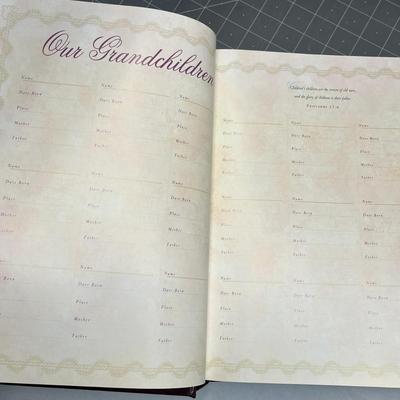 Our Grandchildren
Name Name Name
Date Born Date Born Date Born
Place Place Place
Mother Mother Mother
Father Father Father
Name Name Name
Date Born Date Born Date Born
Place Place Place
Mother Mother Mother
Father Father Father
Name Name
Born Date Born Date Born
Place Place
Mother Mother
Father Father
Children's children are the crown of old men,
and the glory of children is their father.
Proverbs 17:6
Name Name Name
Date Born Date Born Date Born
Place Place Place
Mother Mother Mother
Father Father Father
Name Name Name
Date Born Date Born Date Born
Place Place Place
Mother Mother Mother
Father Father Father
Name Name Name
Date Born Date Born Date Born
Place Place Place
Mother Mother Mother
Father Father Father